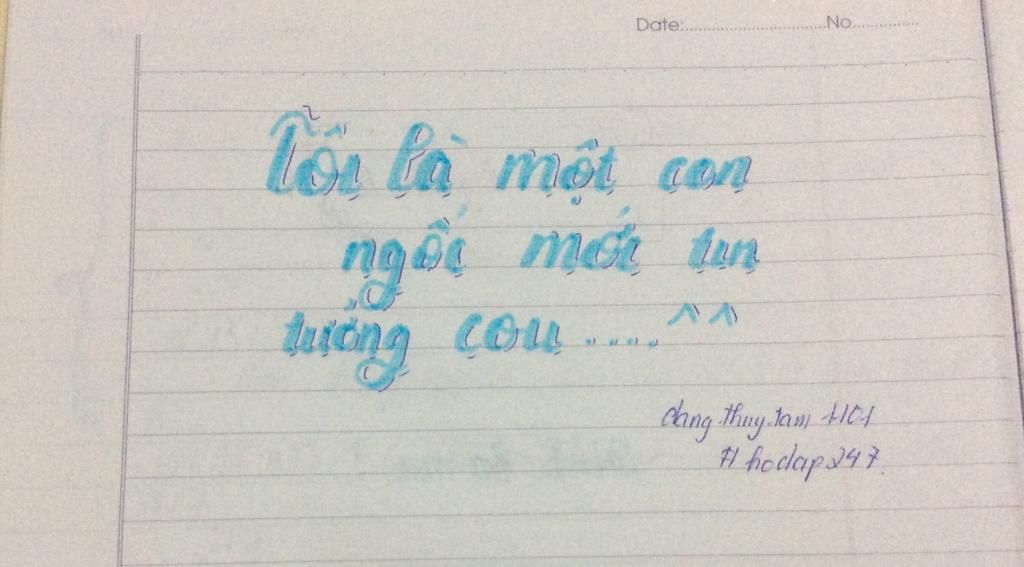 Date:..............................No...............
Tôi là một con
ngốc mới tin
tưởng cou.....^^
dang.thuy.tam 1101
Hhodap247.